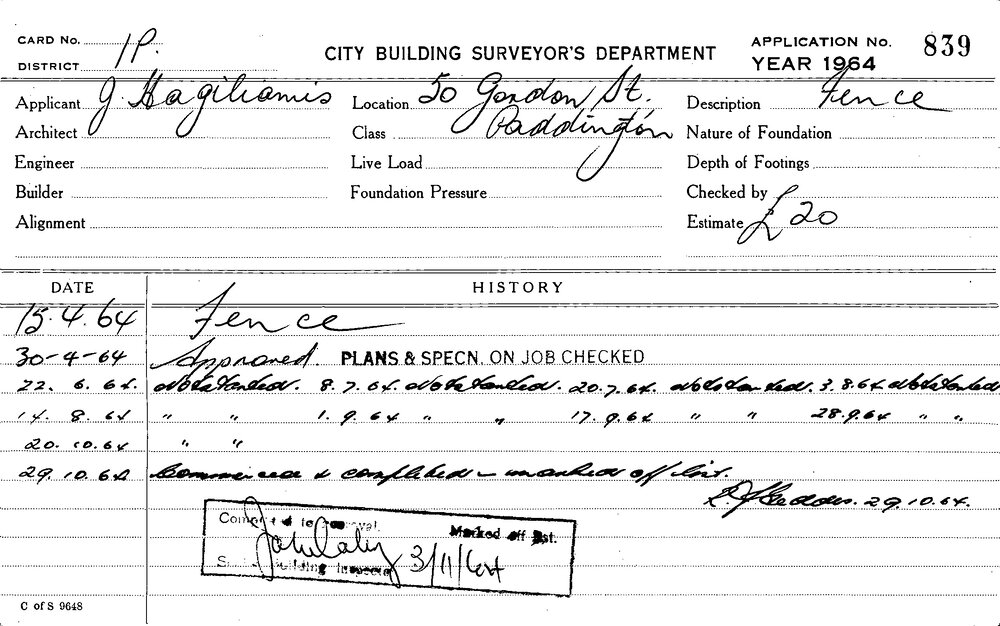 CARD No. 1P.
CITY BUILDING SURVEYOR'S DEPARTMENT
APPLICATION No. 839
DISTRICT
YEAR 1964
Applicant J. Hagiliamis Location 50 Gordon St. Description Fence
Architect Class Paddington Nature of Foundation
Engineer Live Load Depth of Footings
Builder Foundation Pressure Checked by
Alignment Estimate £20
DATE HISTORY
15.4.64 Fence
30-4-64 Approved. PLANS & SPECN. ON JOB CHECKED
22. 6. 64. Not started. 8.7.64. Not started. 20.7.64. Not started. 3.8.64 Not started
14. 8. 64 " " 1.9.64 " " 17.9.64 " " 28.9.64 " "
20. 10.64 " "
29.10.64 Commenced & completed - marked off list.
29.10.64.
Marked off list.
Building Inspector 3/11/64
C of S 9648